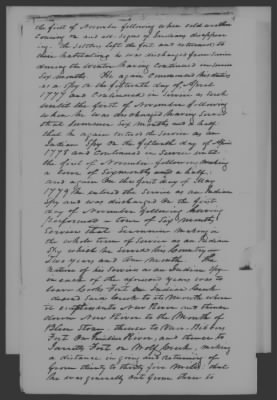 the first of November following when cold weather
Coming on and all signs of Indians disappear
ing. The Settlers left the fort and returned to
there habitations & was discharged from Service
during the Winter having continued in Service
Six months. He again commenced his duties
as a Spy on the fifteenth day of April
1777 and Continued in Service as such
untill the first of November following
when he was discharged having Served
that Summer Six months and a half
that he again entered the Service as an
Indian Spy on the fifteenth day of April
1778 and Continued in Service untill
the first of November following making
a tour of Six months and a half.
and again on the first day of May
1779 He entered the Service as an Indian
Spy and was discharged on the first
day of November following having
Performed a tour of Six months
Service that Summer making in
the whole term of Service as an Indian
Spy which he Served his Country
Two years and One Month. The
nature of his Service as an Indian Spy
on each of the aforesaid years was to
leave Cooks Fort on Indian Creek
down Said Creek to its Mouth where
it New River and thence
down New River to the Mouth of
Blue Stone, thence to
Fort On River, and thence to
Fort on Wolf Creek, making
a distance in going and returning of
from thirty to thirty five Miles. that
He was generally out from three to